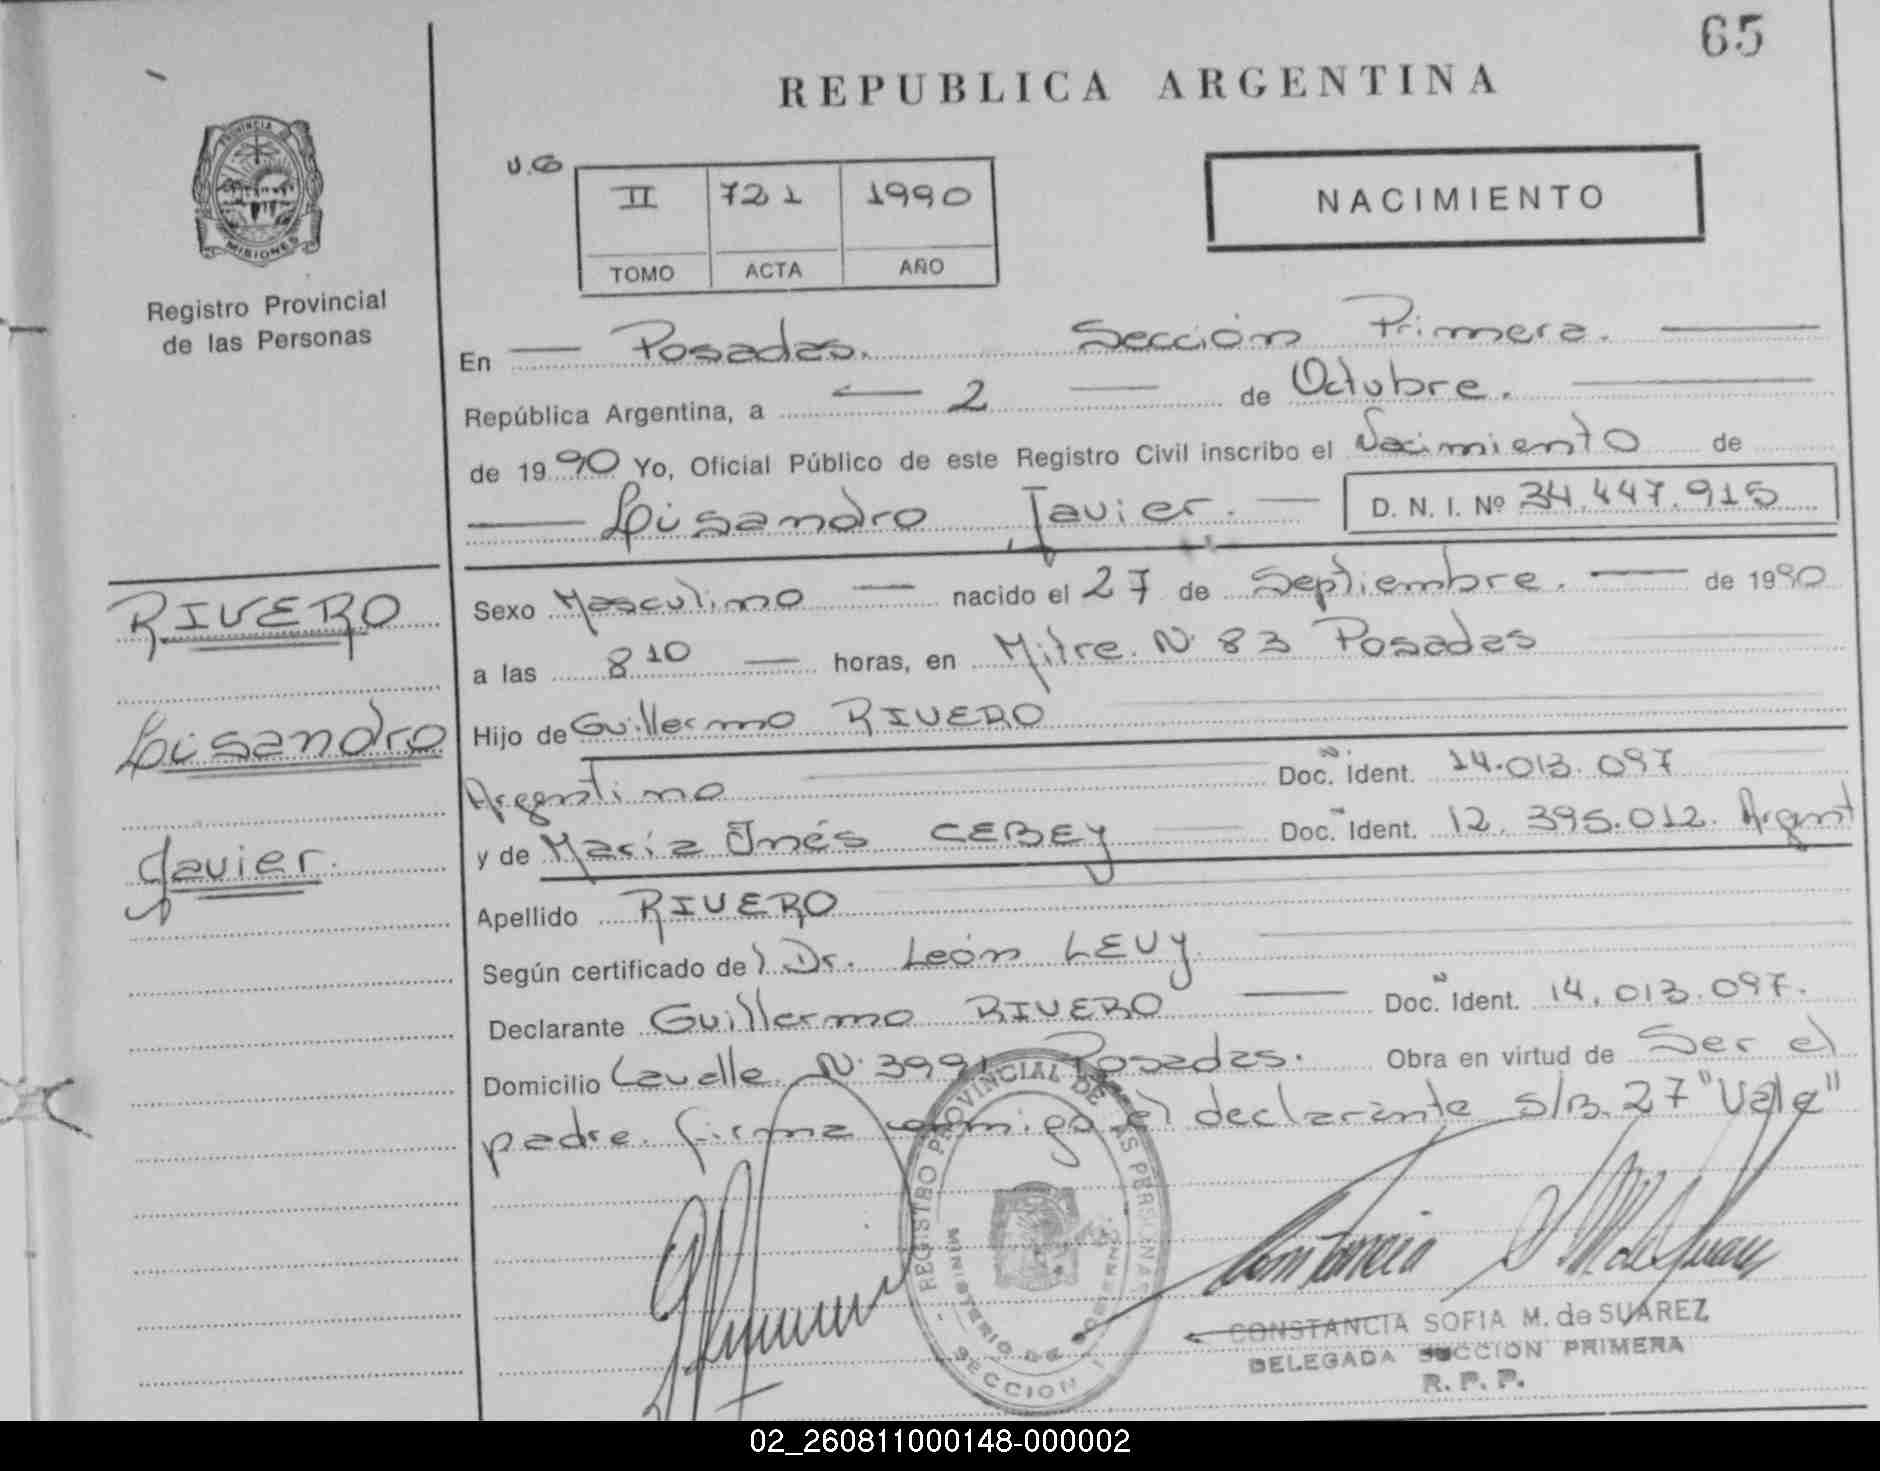 65
REPUBLICA ARGENTINA
PROVINCIA DE
MISIONES
Registro Provincial
de las Personas
U.G
II 721 1990
TOMO ACTA AÑO
NACIMIENTO
En Posadas. Sección Primera.
República Argentina, a 2 de Octubre.
de 1990 Yo, Oficial Público de este Registro Civil inscribo el Nacimiento de
Lisandro Javier. D. N. I. Nº 34.447.915
RIVERO
Lisandro
Javier.
Sexo Masculino nacido el 27 de Septiembre. de 1990
a las 8 10 horas, en Mitre. N. 83 Posadas
Hijo de Guillermo RIVERO
Argentino Doc. Ident. 14.013.097
y de María Inés CEBEY Doc. Ident. 12.395.012. Argent
Apellido RIVERO
Según certificado del Dr. León LEVY.
Declarante Guillermo RIVERO Doc. Ident. 14.013.097.
Domicilio Lavalle N. 3991 Posadas. Obra en virtud de Ser el
padre. firma conmigo el declarante s/B. 27 "Vale"
REGISTRO PROVINCIAL DE LAS PERSONAS
MINISTERIO DE GOBIERNO
SECCION 1
CONSTANCIA SOFIA M. de SUAREZ
DELEGADA SECCION PRIMERA
R. P. P.
02_260811000148-000002